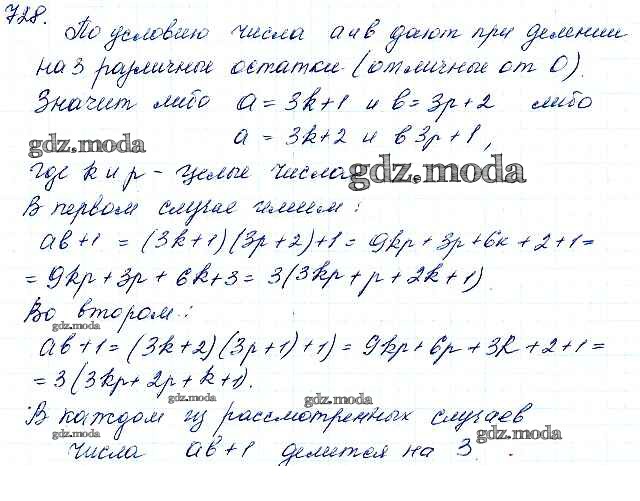 728. По условию числа а и в дают при делении
на 3 различные остатки (отличные от 0).
Значит либо a = 3k+1 и в = 3p+2 либо
a = 3k+2 и в 3p+1,
gdz.moda
где k и p – целые числа.
gdz.moda
В первом случае имеем:
ab+1 = (3k+1)(3p+2)+1 = 9kp+3p+6k+2+1=
= 9kp+3p+6k+3 = 3(3kp+p+2k+1)
Во втором:
gdz.moda
ab+1 = (3k+2)(3p+1)+1) = 9kp+6p+3k+2+1=
= 3(3kp+2p+k+1).
gdz.moda
gdz.moda
В каждом из рассмотренных случаев
gdz.moda
gdz.moda
числа ab+1 делится на 3.